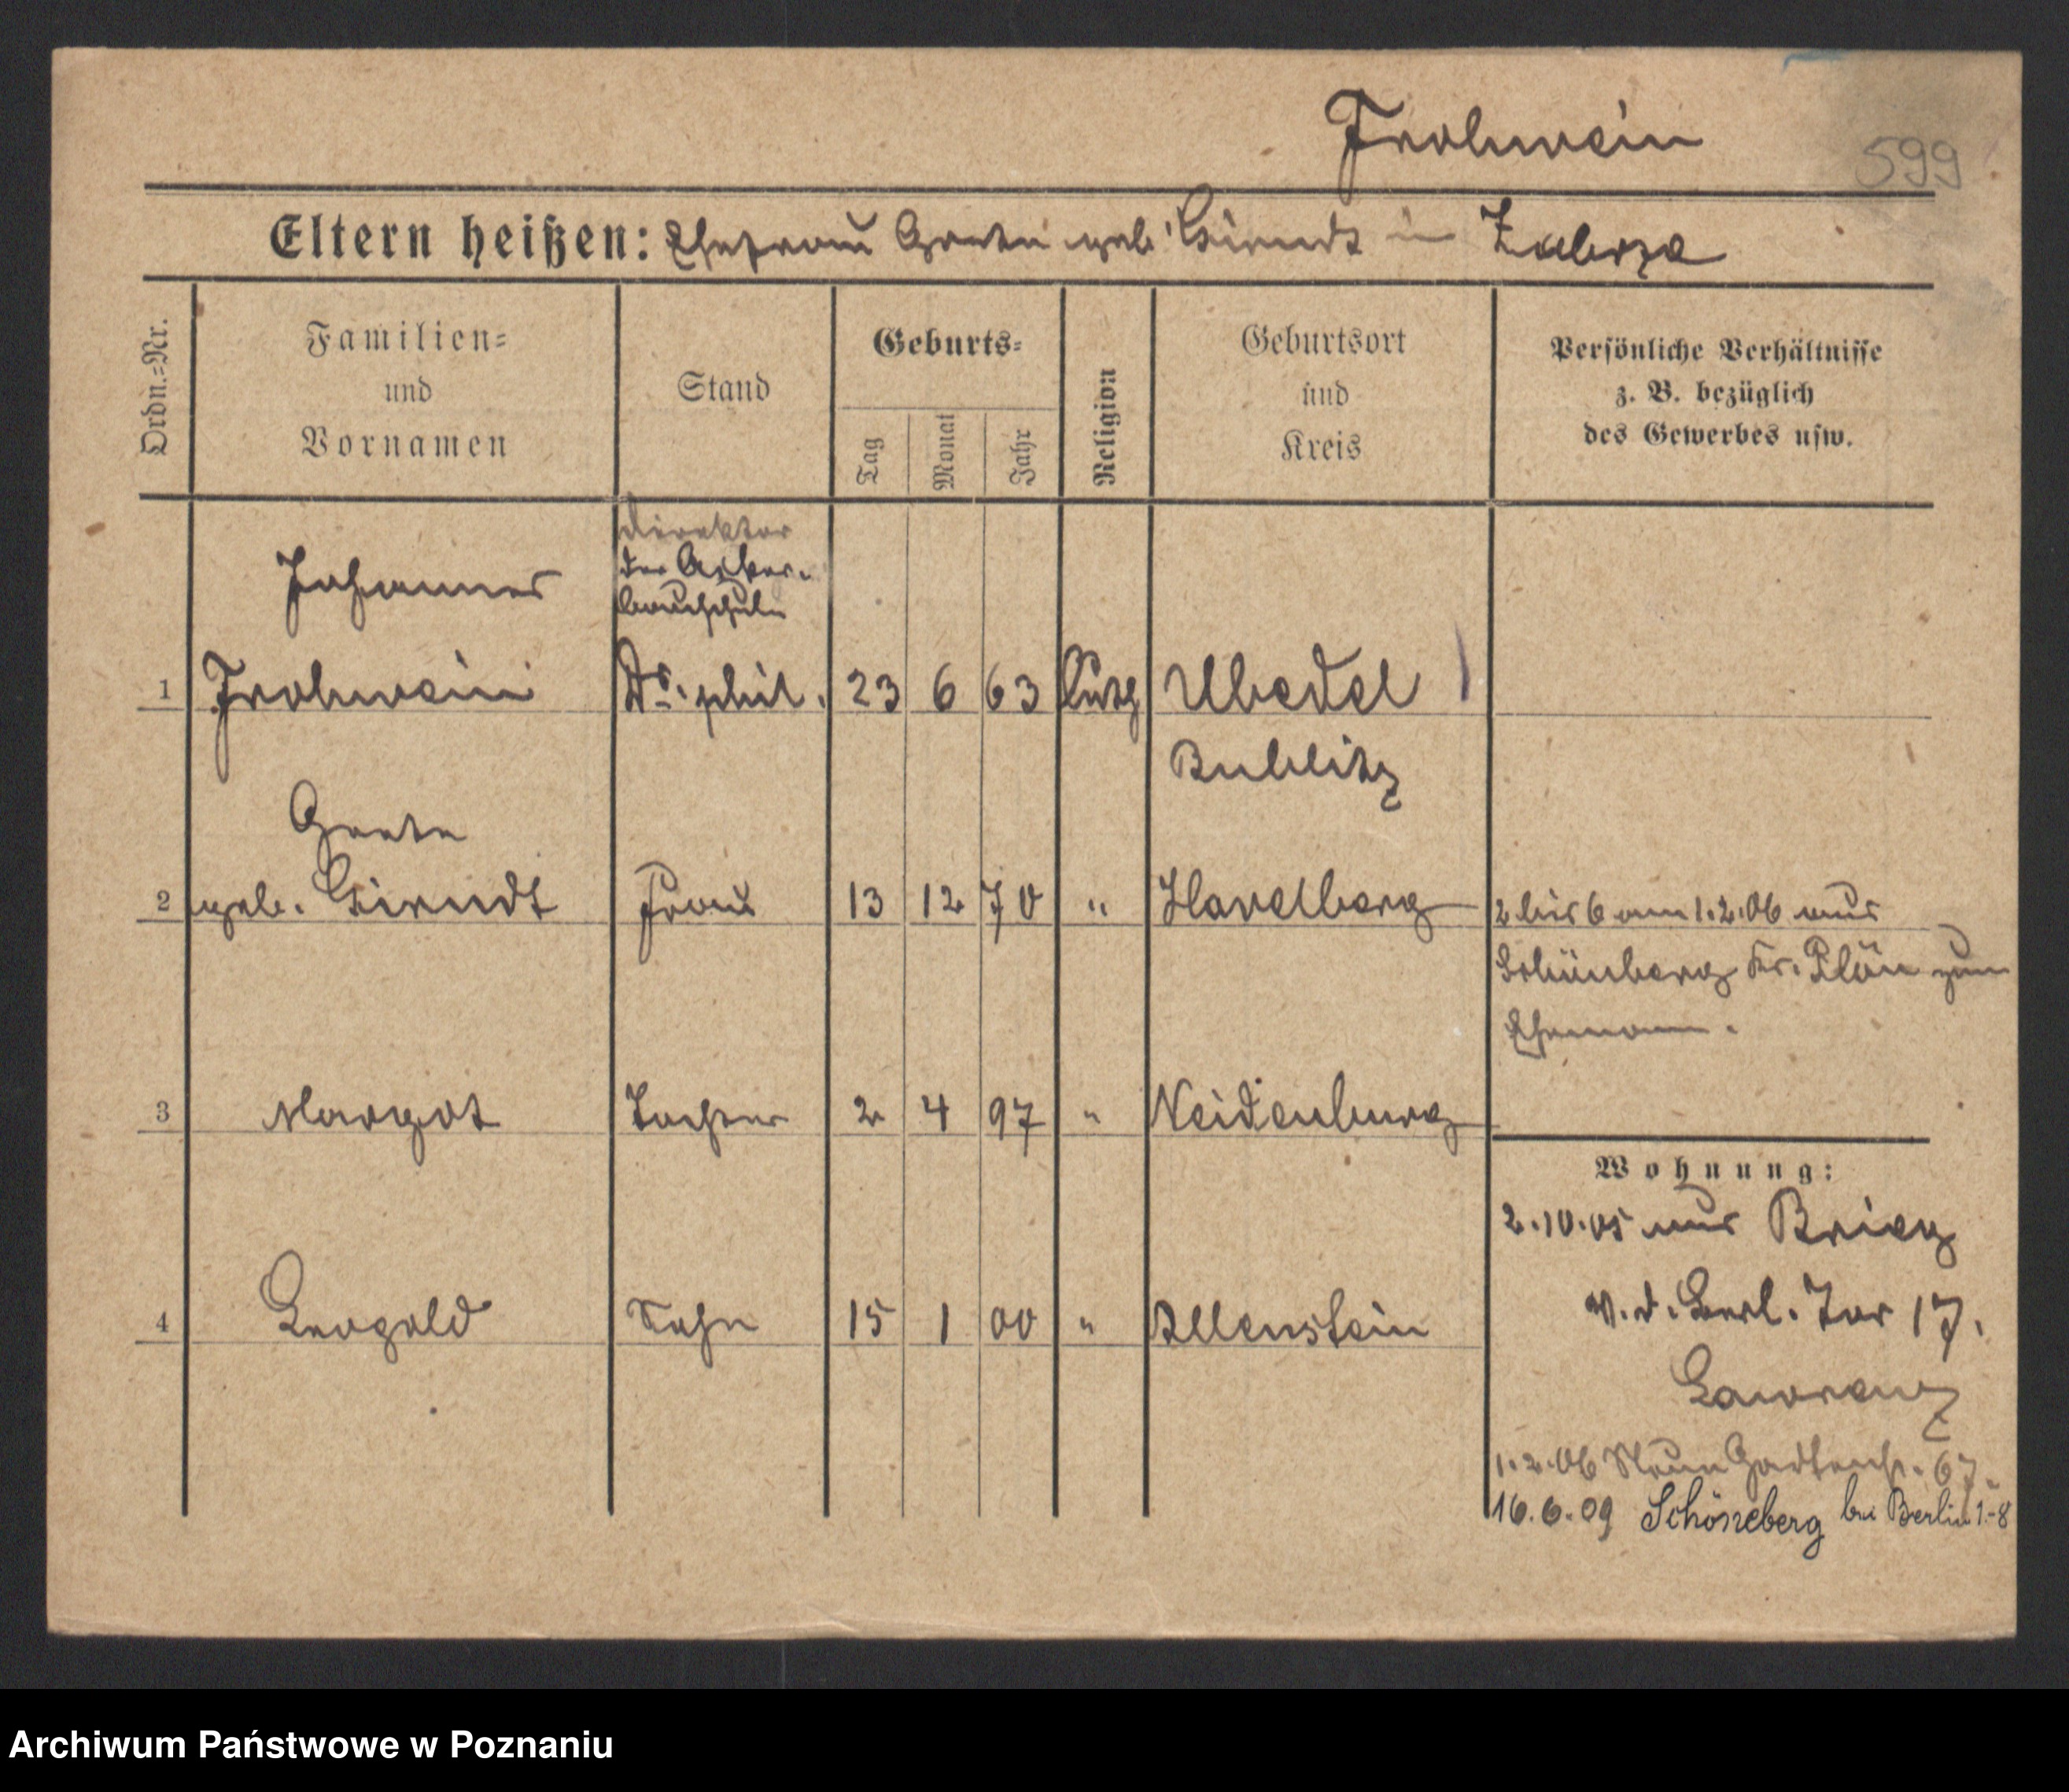 Frohwein
599
Eltern heißen: Ehefrau Grete geb. Girndt in Zabrze
Ordn.=Nr.
Familien=
und
Vornamen
Stand
Geburts=
Tag
Monat
Jahr
Religion
Geburtsort
und
Kreis
Persönliche Verhältnisse
z. B. bezüglich
des Gewerbes usw.
Direktor
der Acker-
bauschule
Johannes
1 Frohwein Dr. phil. 23 6 63 Ubedel
Bublitz
Grete
2 geb. Girndt Frau 13 12 70 " Havelberg
2 bis 6 am 1.2.06 aus
Schönberg Kr. Plön zum
Ehemann.
3 Margot Tochter 2 4 97 " Neidenburg
Wohnung:
2.10.05 aus Brieg
v. d. Berl. Tor 17.
4 Leopold Sohn 15 1 00 " Allenstein
Lawrenz
1.2.06 Neue Gartenstr. 67.
16.6.09 Schöneberg bei Berlin 1-8